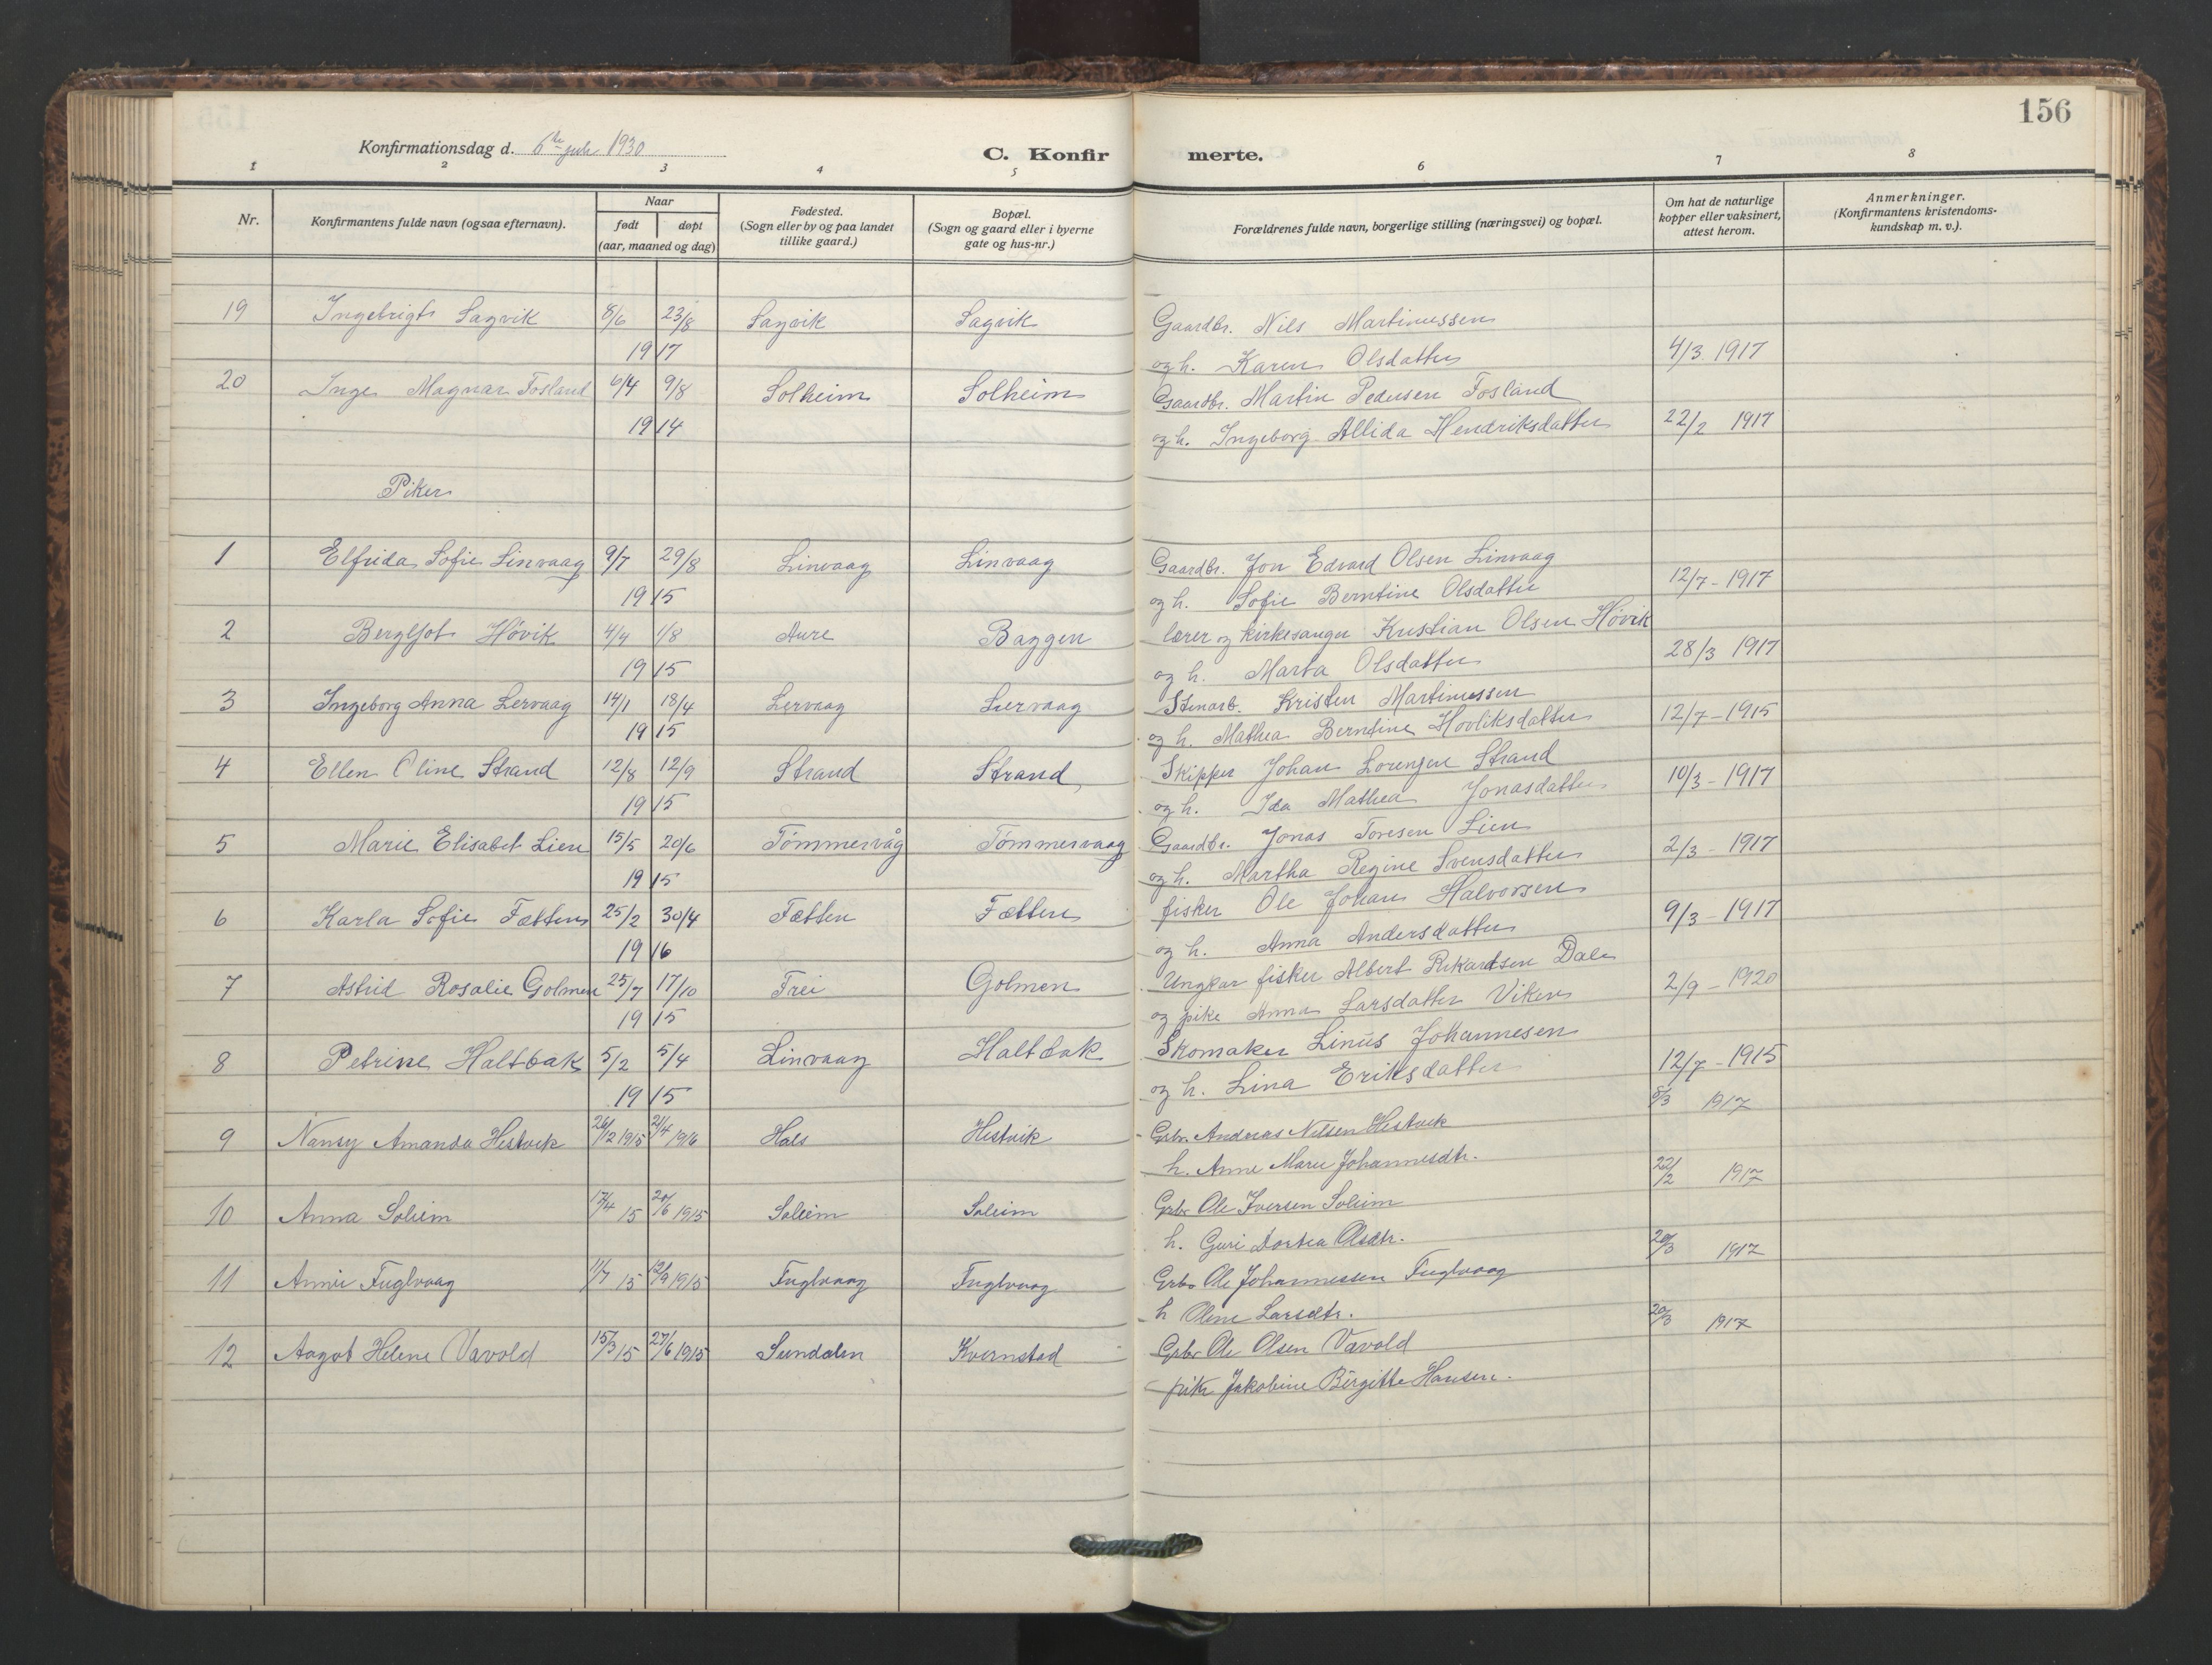 156
Konfirmationsdag d. 6te juli 1930
C. Konfirmerte.
1 2 3 4 5 6 7 8
Nr. Konfirmantens fulde navn (ogsaa efternavn). Naar født døpt (aar, maaned og dag) Fødested. (Sogn eller by og paa landet tillike gaard.) Bopæl. (Sogn og gaard eller i byerne gate og hus-nr.) Forældrenes fulde navn, borgerlige stilling (næringsvei) og bopæl. Om hat de naturlige kopper eller vaksinert, attest herom. Anmerkninger. (Konfirmantens kristendomskundskap m. v.).
19 Ingebrigt Sagvik 8/6 23/8 Sagvik Sagvik Gaardbr. Nils Martinussen
1917 og h. Karen Olsdatter 4/3 1917
20 Inge Magnar Fosland 6/4 9/8 Solheim Solheim Gaardbr. Martin Pedersen Fosland
1914 og h. Ingeborg Allida Hendriksdatter 22/2 1917
Piker
1 Elfrida Sofie Linvaag 9/7 29/8 Linvaag Linvaag Gaardbr. Jon Edvard Olsen Linvaag
1915 og h. Sofie Berntine Olsdatter 12/7 - 1917
2 Bergljot Høvik 4/4 1/8 Aure Baggen lærer og kirkesanger Kristian Olsen Høvik
1915 og h. Marta Olsdatter 28/3 1917
3 Ingeborg Anna Lervaag 14/1 18/4 Lervaag Lervaag Stenarb. Kristen Martinussen
1915 og h. Mathea Berntine Hovliksdatter 12/7 - 1915
4 Ellen Oline Strand 12/8 12/9 Strand Strand Skipper Johan Lorensen Strand
1915 og h. Ida Mathea Jonasdatter 10/3 - 1917
5 Marie Elisabet Lien 15/5 20/6 Tømmervåg Tømmervaag Gaardbr. Jonas Toresen Lien
1915 og h. Martha Regine Svensdatter 2/3 - 1917
6 Karla Sofie Fætten 25/2 30/4 Fætten Fætten fisker Ole Johan Halvorsen
1916 og h. Anna Andersdatter 9/3 - 1917
7 Astrid Rosalie Golmen 25/7 17/10 Frei Golmen Ungkar fisker Albert Rikardsen Dale
1915 og pike Anna Larsdatter Viken 2/9 - 1920
8 Petrine Haltbak 5/2 5/4 Linvaag Haltbak Skomaker Linus Johannesen
1915 og h. Lina Eriksdatter 12/7 - 1915
9 Nansy Amanda Hestvik 26/12 1915 24/4 1916 Hals Hestvik Grbr. Andreas Nilsen Hestvik 5/3 1917
h. Anne Marie Johannesdtr.
10 Anna Soleim 17/4 15 20/6 1915 Soleim Soleim Grbr Ole Iversen Soleim 22/2 1917
h. Guri Dortea Olsdtr.
11 Annie Fuglvaag 11/7 15 12/9 1915 Fuglvaag Fuglvaag Grbr Ole Johannessen Fuglvaag 20/3 1917
h Oline Larsdtr.
12 Aagot Helene Vavold 15/3 15 27/6 1915 Sundalen Kvernstad Grbr Ole Olsen Vavold 20/3 1917
pike Jakobine Birgitte Hansen.